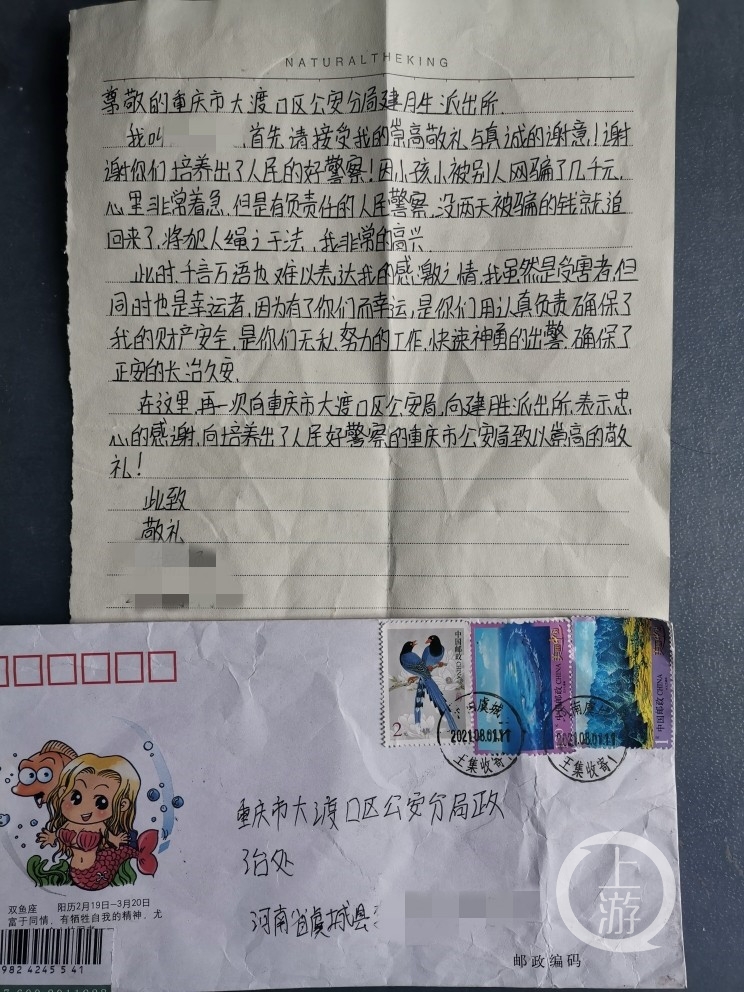 NATURALTHEKING
尊敬的重庆市大渡口区公安分局建月生派出所.
我叫 ,首先请接受我的崇高敬礼与真诚的谢意!谢
谢你们培养出了人民的好警察!因小孩小被别人网骗了几千元,
心里非常着急,但是有负责任的人民警察,没两天被骗的钱就追
回来了,将犯人绳之于法,我非常的高兴.
此时,千言万语也难以表达我的感激之情,我虽然是受害者,但
同时也是幸运者,因为有了你们而幸运,是你们用认真负责确保了
我的财产安全,是你们无私努力的工作,快速神勇的出警,确保了
正安的长治久安.
在这里,再一次向重庆市大渡口区公安局,向建胜派出所,表示忠
心的感谢,向培养出了人民好警察的重庆市公安局致以崇高的敬
礼!
此致
敬礼
中国邮政 CHINA
2元
中国邮政 CHINA
中国邮政 CHINA
虞城
2021.08.01.11
王集收寄
河南虞
2021.08.01.11
王集收寄1
重庆市大渡口区公安分局政
治处
河南省虞城县
双鱼座 阳历2月19日—3月20日
富于同情、有牺牲自我的精神、尤
982 4245 5 41
邮政编码
上游